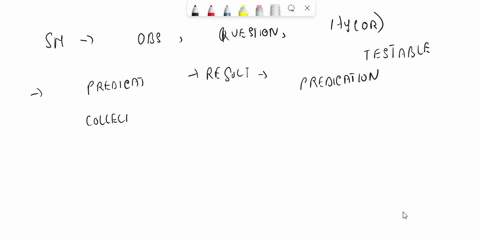 SM → OBS, QUESTION, Hy(OR)
TESTABLE
→ PREDICAT → RESULT → PREDICATION
COLLECI